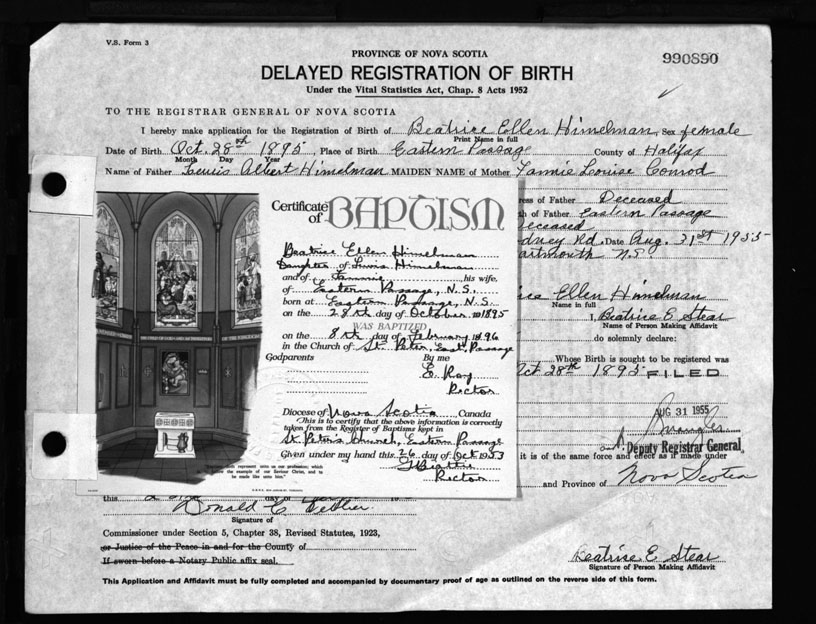 V.S. Form 3
990890
PROVINCE OF NOVA SCOTIA
DELAYED REGISTRATION OF BIRTH
Under the Vital Statistics Act, Chap. 8 Acts 1952
TO THE REGISTRAR GENERAL OF NOVA SCOTIA
I hereby make application for the Registration of Birth of Beatrice Ellen Himelman, Sex female
Print Name in full
Date of Birth Oct. 28th 1895, Place of Birth Eastern Passage County of Halifax
Month Day Year
Name of Father Lewis Albert Himelman MAIDEN NAME of Mother Fannie Louise Conrod
ress of Father Deceased
h of Father Eastern Passage
eceased
dney Rd. Date Aug. 31st 1955
artmouth N.S
ice Ellen Himelman
Name in full
I, Beatrice E Stear
Name of Person Making Affidavit
do solemnly declare:
Whose Birth is sought to be registered was
Oct 28th 1895 FILED
AUG 31 1955
Deputy Registrar General,
it is of the same force and effect as if made under
and Province of Nova Scotia
Certificate of BAPTISM
Beatrice Ellen Himelman
Daughter of Lewis Himelman
and of Fannie his wife,
of Eastern Passage, N.S.
born at Eastern Passage, N.S.
on the 28th day of October 1895
WAS BAPTIZED
on the 8th day of February 1896
in the Church of St. Peter, East. Passage
Godparents By me
E. Roy
Rector
Diocese of Nova Scotia, Canada
This is to certify that the above information is correctly
taken from the Register of Baptisms kept in
St. Peter's Church, Eastern Passage
Given under my hand this 26 day of Oct 1953
Rector
doth represent unto us our profession; which
the example of our Saviour Christ, and to
be made like unto him."
this day of
Donald C.
Signature of
Commissioner under Section 5, Chapter 38, Revised Statutes, 1923,
or Justice of the Peace in and for the County of
If sworn before a Notary Public affix seal.
Beatrice E Stear
Signature of Person Making Affidavit
This Application and Affidavit must be fully completed and accompanied by documentary proof of age as outlined on the reverse side of this form.